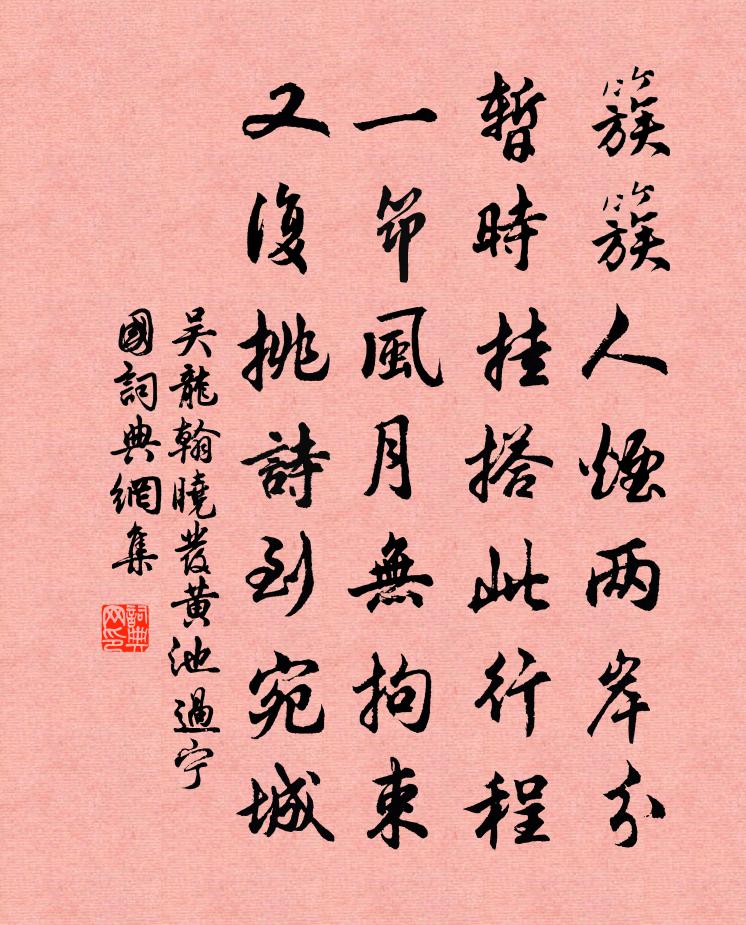 簇簇人煙两岸分
暫時挂搭此行程
一笻風月無拘束
又復挑詩到宛城
吴龍翰曉發黄池過宁
國詞典網集
詞典
网印